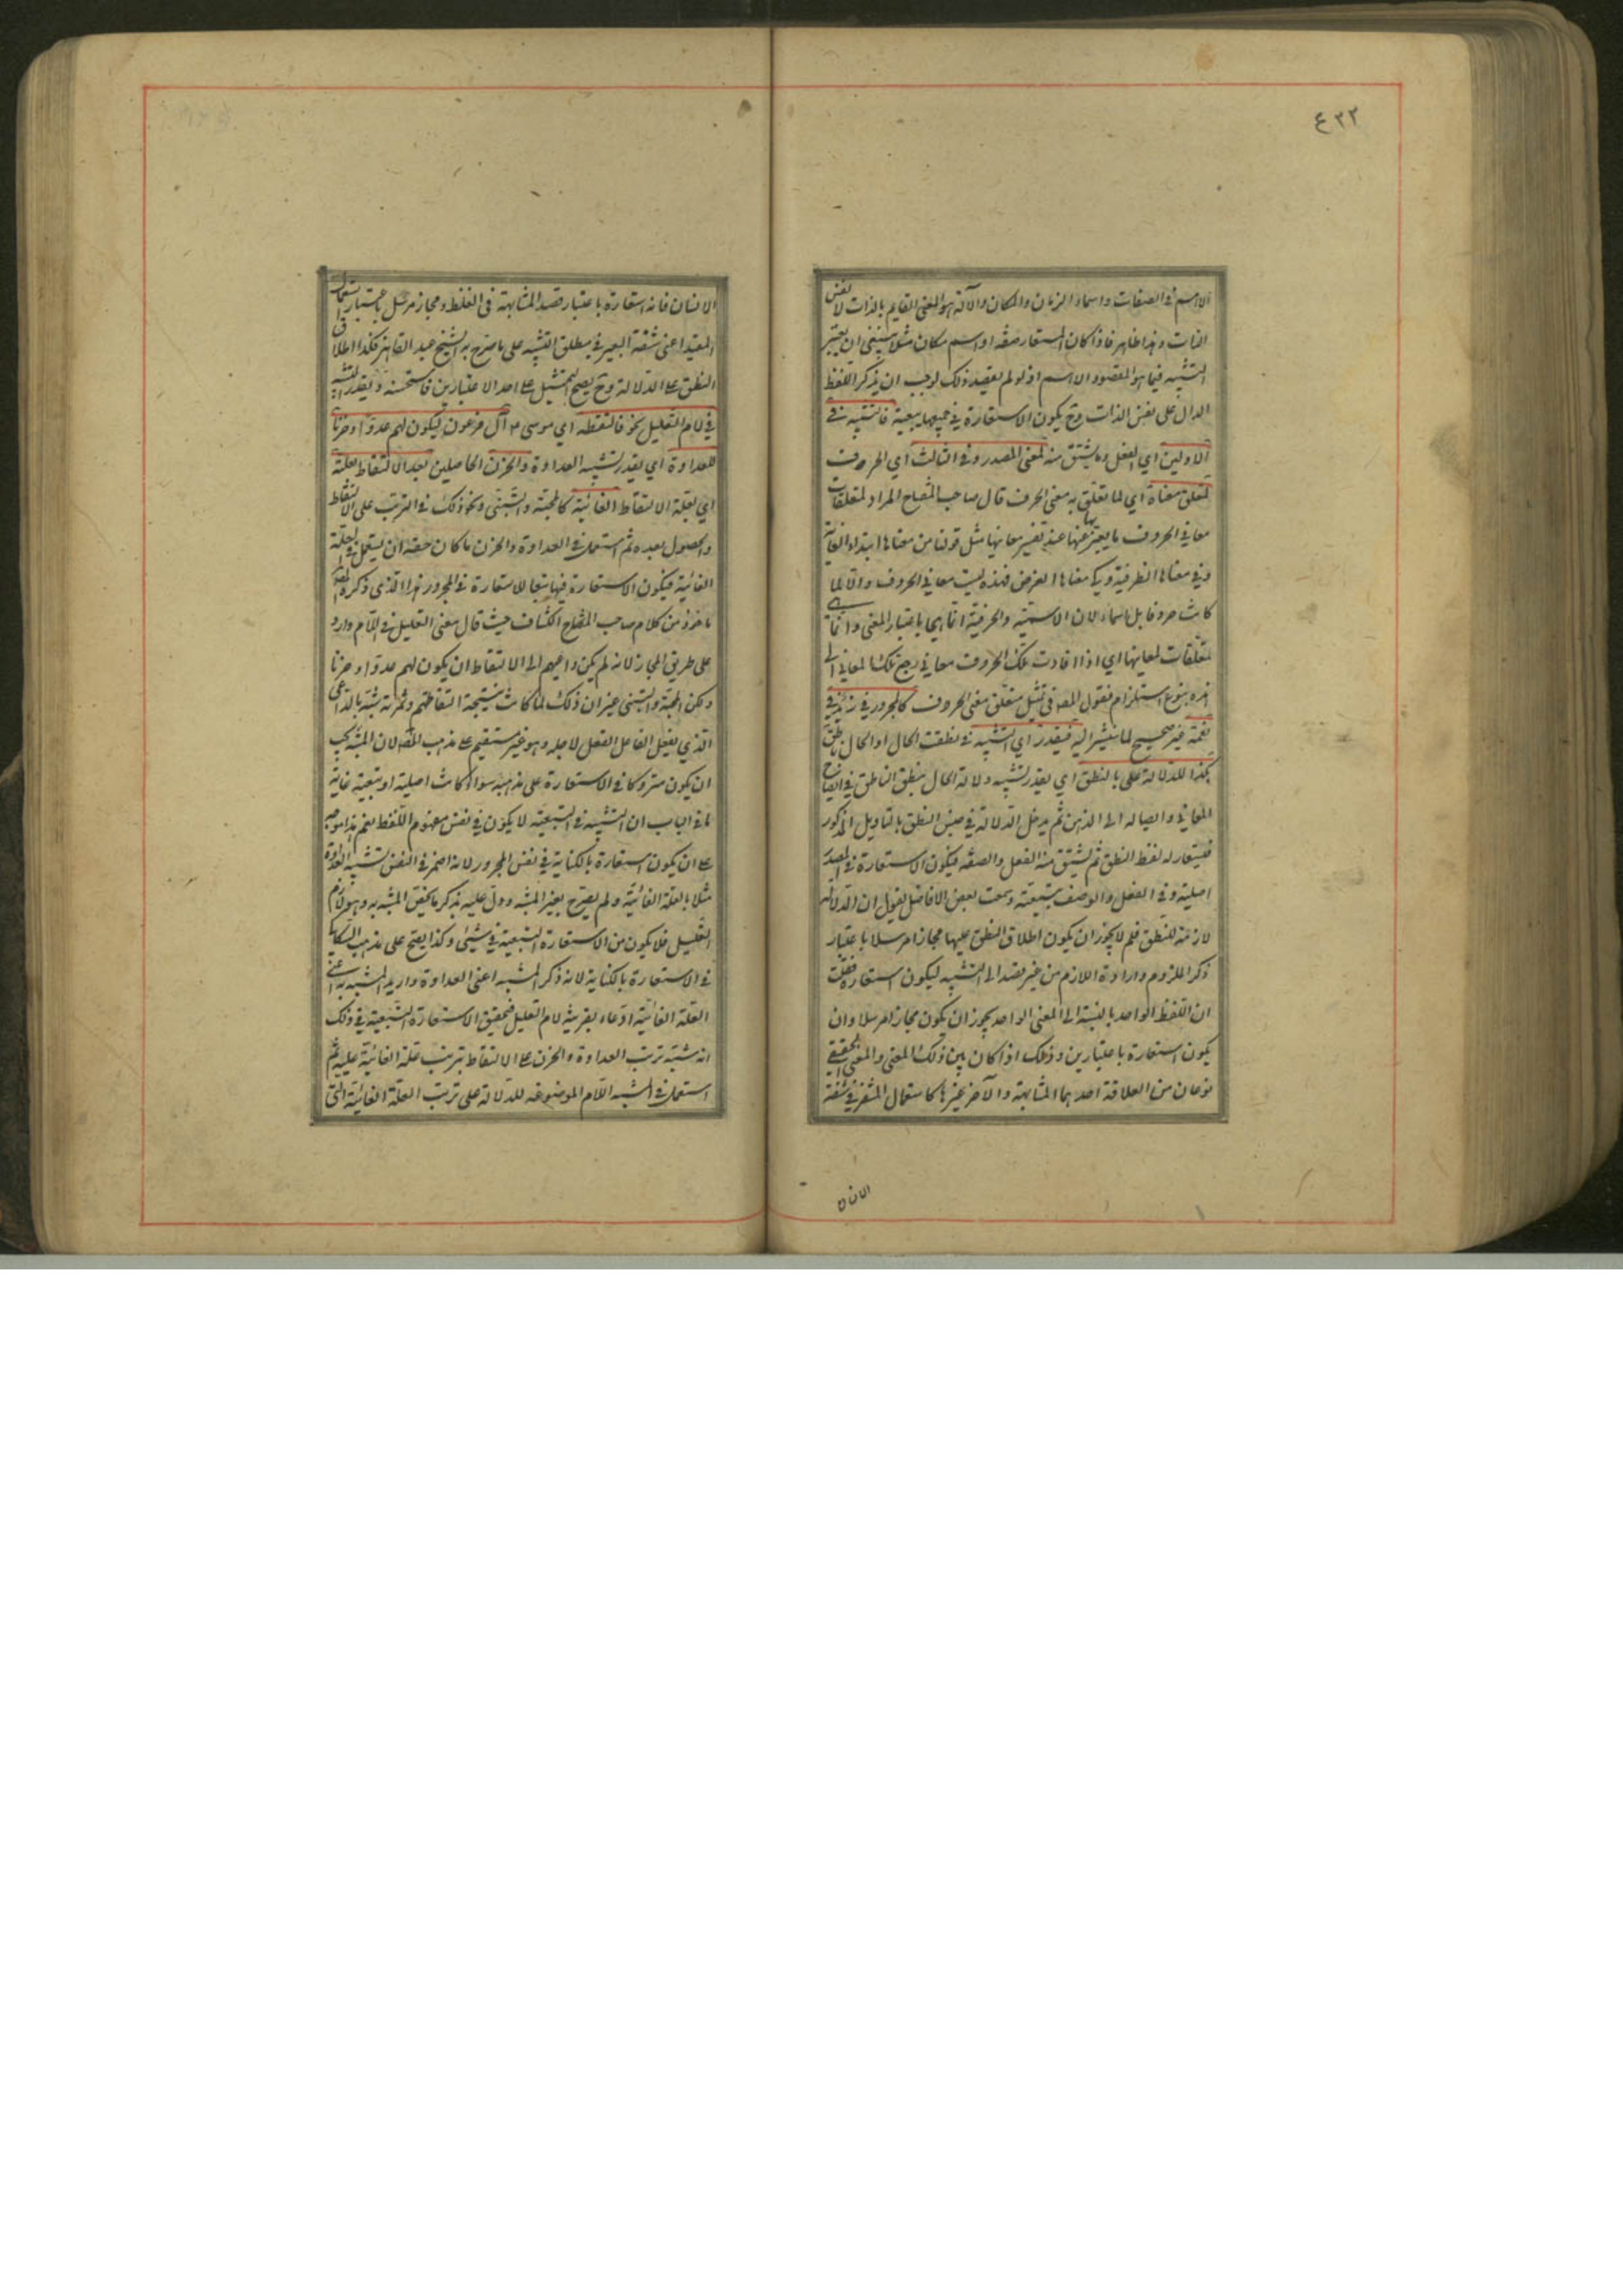 ٤٣٢
الاهم في الصفات واسماء الزمان والمكان والآلة هو المعنى القايم بالذات لا نفس
الذات وهذا ظاهر فاذا كان المستعار صفة او اسم مكان مثلا ينبغي ان يعتبر
التشبيه فيما هو المقصود الاهم اذ لو لم يقصد ذلك لوجب ان يذكر اللفظ
الدال على نفس الذات وح يكون الاستعارة في جميعها تبعية فالتشبيه في
الاولين اي الفعل وما يشتق منه لمعنى المصدر وفي الثالث اي الحروف
لمتعلق معناه اي لما تعلق به معنى الحرف قال صاحب المفتاح المراد بمتعلقات
معاني الحروف ما يعبر بها عنها عند تفسير معانيها مثل قولنا من معناها ابتداء الغاية
وفي معناها الظرفية وكي معناها الغرض فهذه ليست معاني الحروف والا لما
كانت حروفا بل اسماء لان الاسمية والحرفية انما هي باعتبار المعنى وانما هي
متعلقات لمعانيها اي اذا افادت تلك الحروف معاني رجع تلك المعاني الى
هذه بنوع استلزام فقول المصـ في تمثيل متعلق معنى الحروف كالمجرور في زيد في
نعمة غير صحيح لما نشير اليه فيقدر اي التشبيه في نطقت الحال او الحال ناطقة
بكذا للدلالة على بالنطق اي يقدر تشبيه دلالة الحال بنطق الناطق في ايضاح
المعاني وايصاله الى الذهن ثم يدخل الدلالة في جنس النطق بالتاويل المذكور
فيستعار له لفظ النطق ثم يشتق منه الفعل والصفة فيكون الاستعارة في المصدر
اصلية وفي الفعل والوصف تبعية وسمعت بعض الافاضل يقول ان الدلالة
لازمة للنطق فلم لا يجوز ان يكون اطلاق النطق عليها مجازا مرسلا باعتبار
ذكر الملزوم وارادة اللازم من غير قصد الى التشبيه ليكون استعارة فقلت
ان اللفظ الواحد بالنسبة الى المعنى الواحد يجوز ان يكون مجازا مرسلا وان
يكون استعارة باعتبارين وذلك اذا كان بين ذلك المعنى والمعنى الحقيقي
نوعان من العلاقة احدهما المشابهة والآخر غيرها كاستعمال المشفر في شفة
الانسان
الانسان فانه استعارة باعتبار قصد المشابهة في الغلظ ومجاز مرسل باعتبار استعمال
المقيد اعني شفة البعير في مطلق الشفة على ما صرح به الشيخ عبد القاهر فكذا اطلاق
النطق على الدلالة وح يصح التمثيل على احد الاعتبارين فاستحسنه ويقدر التشبيه
في لام التعليل نحو فالتقطه اي موسى ع آل فرعون ليكون لهم عدوا وحزنا
للعداوة اي يقدر تشبيه العداوة والحزن الحاصلين بعد الالتقاط بعلته
اي بعلة الالتقاط الغائية كالمحبة والتبني ونحو ذلك في الترتب على الالتقاط
والحصول بعده ثم استعمل في العداوة والحزن ما كان حقه ان يستعمل في العلة
الغائية فيكون الاستعارة فيها تبعا للاستعارة في المجرور هذا الذي ذكره المصـ
ماخوذ من كلام صاحب الكشاف حيث قال معنى التعليل في اللام وارد
على طريق المجاز لانه لم يكن داعيهم الى الالتقاط ان يكون لهم عدوا وحزنا
ولكن المحبة والتبني غير ان ذلك لما كانت نتيجة التقاطهم وثمرته شبه بالداعي
الذي يفعل الفاعل الفعل لاجله وهو غير مستقيم على مذهب المصـ لان المشبه يجب
ان يكون متروكا في الاستعارة على مذهبه سواء كانت اصلية او تبعية غاية
ما في الباب ان التشبيه في التبعية لا يكون في نفس مفهوم اللفظ نعم هذا موجه
على ان يكون استعارة بالكناية في نفس المجرور لانه اضمر في النفس تشبيه العداوة
مثلا بالعلة الغائية ولم يصرح بغير المشبه ودل عليه بذكر ما يخص المشبه به وهو لام
التعليل فلا يكون من الاستعارة التبعية في شيء وكذا يصح على مذهب السكاكي
في الاستعارة بالكناية لانه ذكر المشبه اعني العداوة واريد المشبه به اعني
العلة الغائية ادعاء بقرينة لام التعليل فتحقيق الاستعارة التبعية في ذلك
انه شبه ترتب العداوة والحزن على الالتقاط بترتب علته الغائية عليه ثم
استعمل في المشبه اللام الموضوعة للدلالة على ترتب العلة الغائية التي